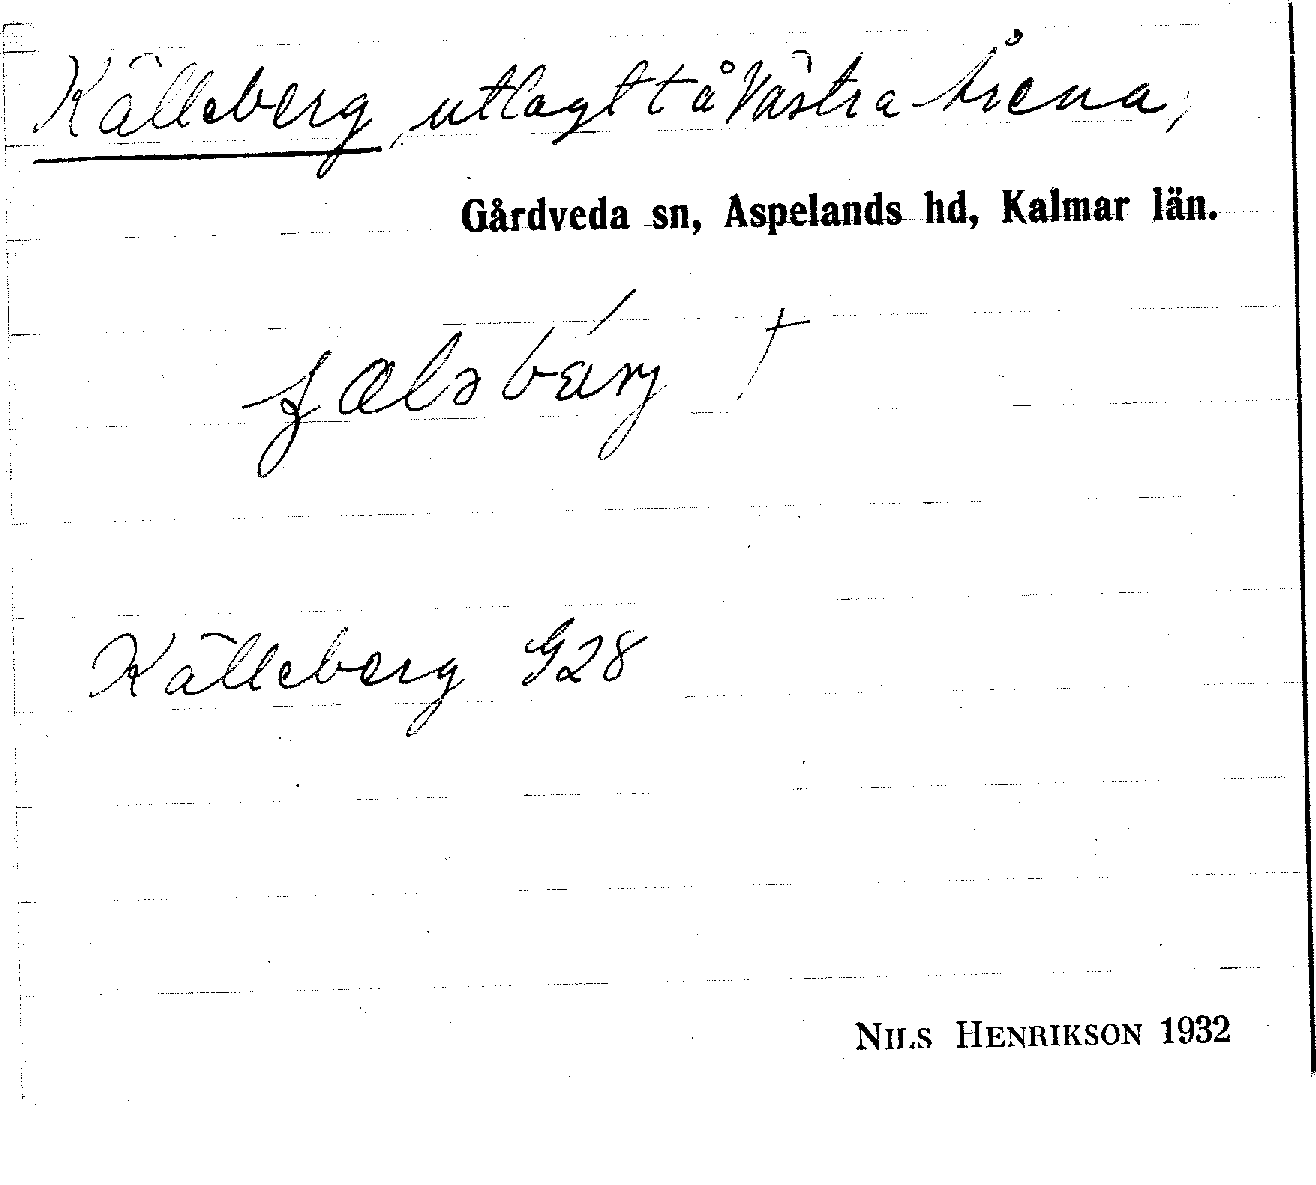 Källeberg, utlagt t å Västra Årena,
Gårdveda sn, Aspelands hd, Kalmar län.
Källeberg G28
NILS HENRIKSON 1932